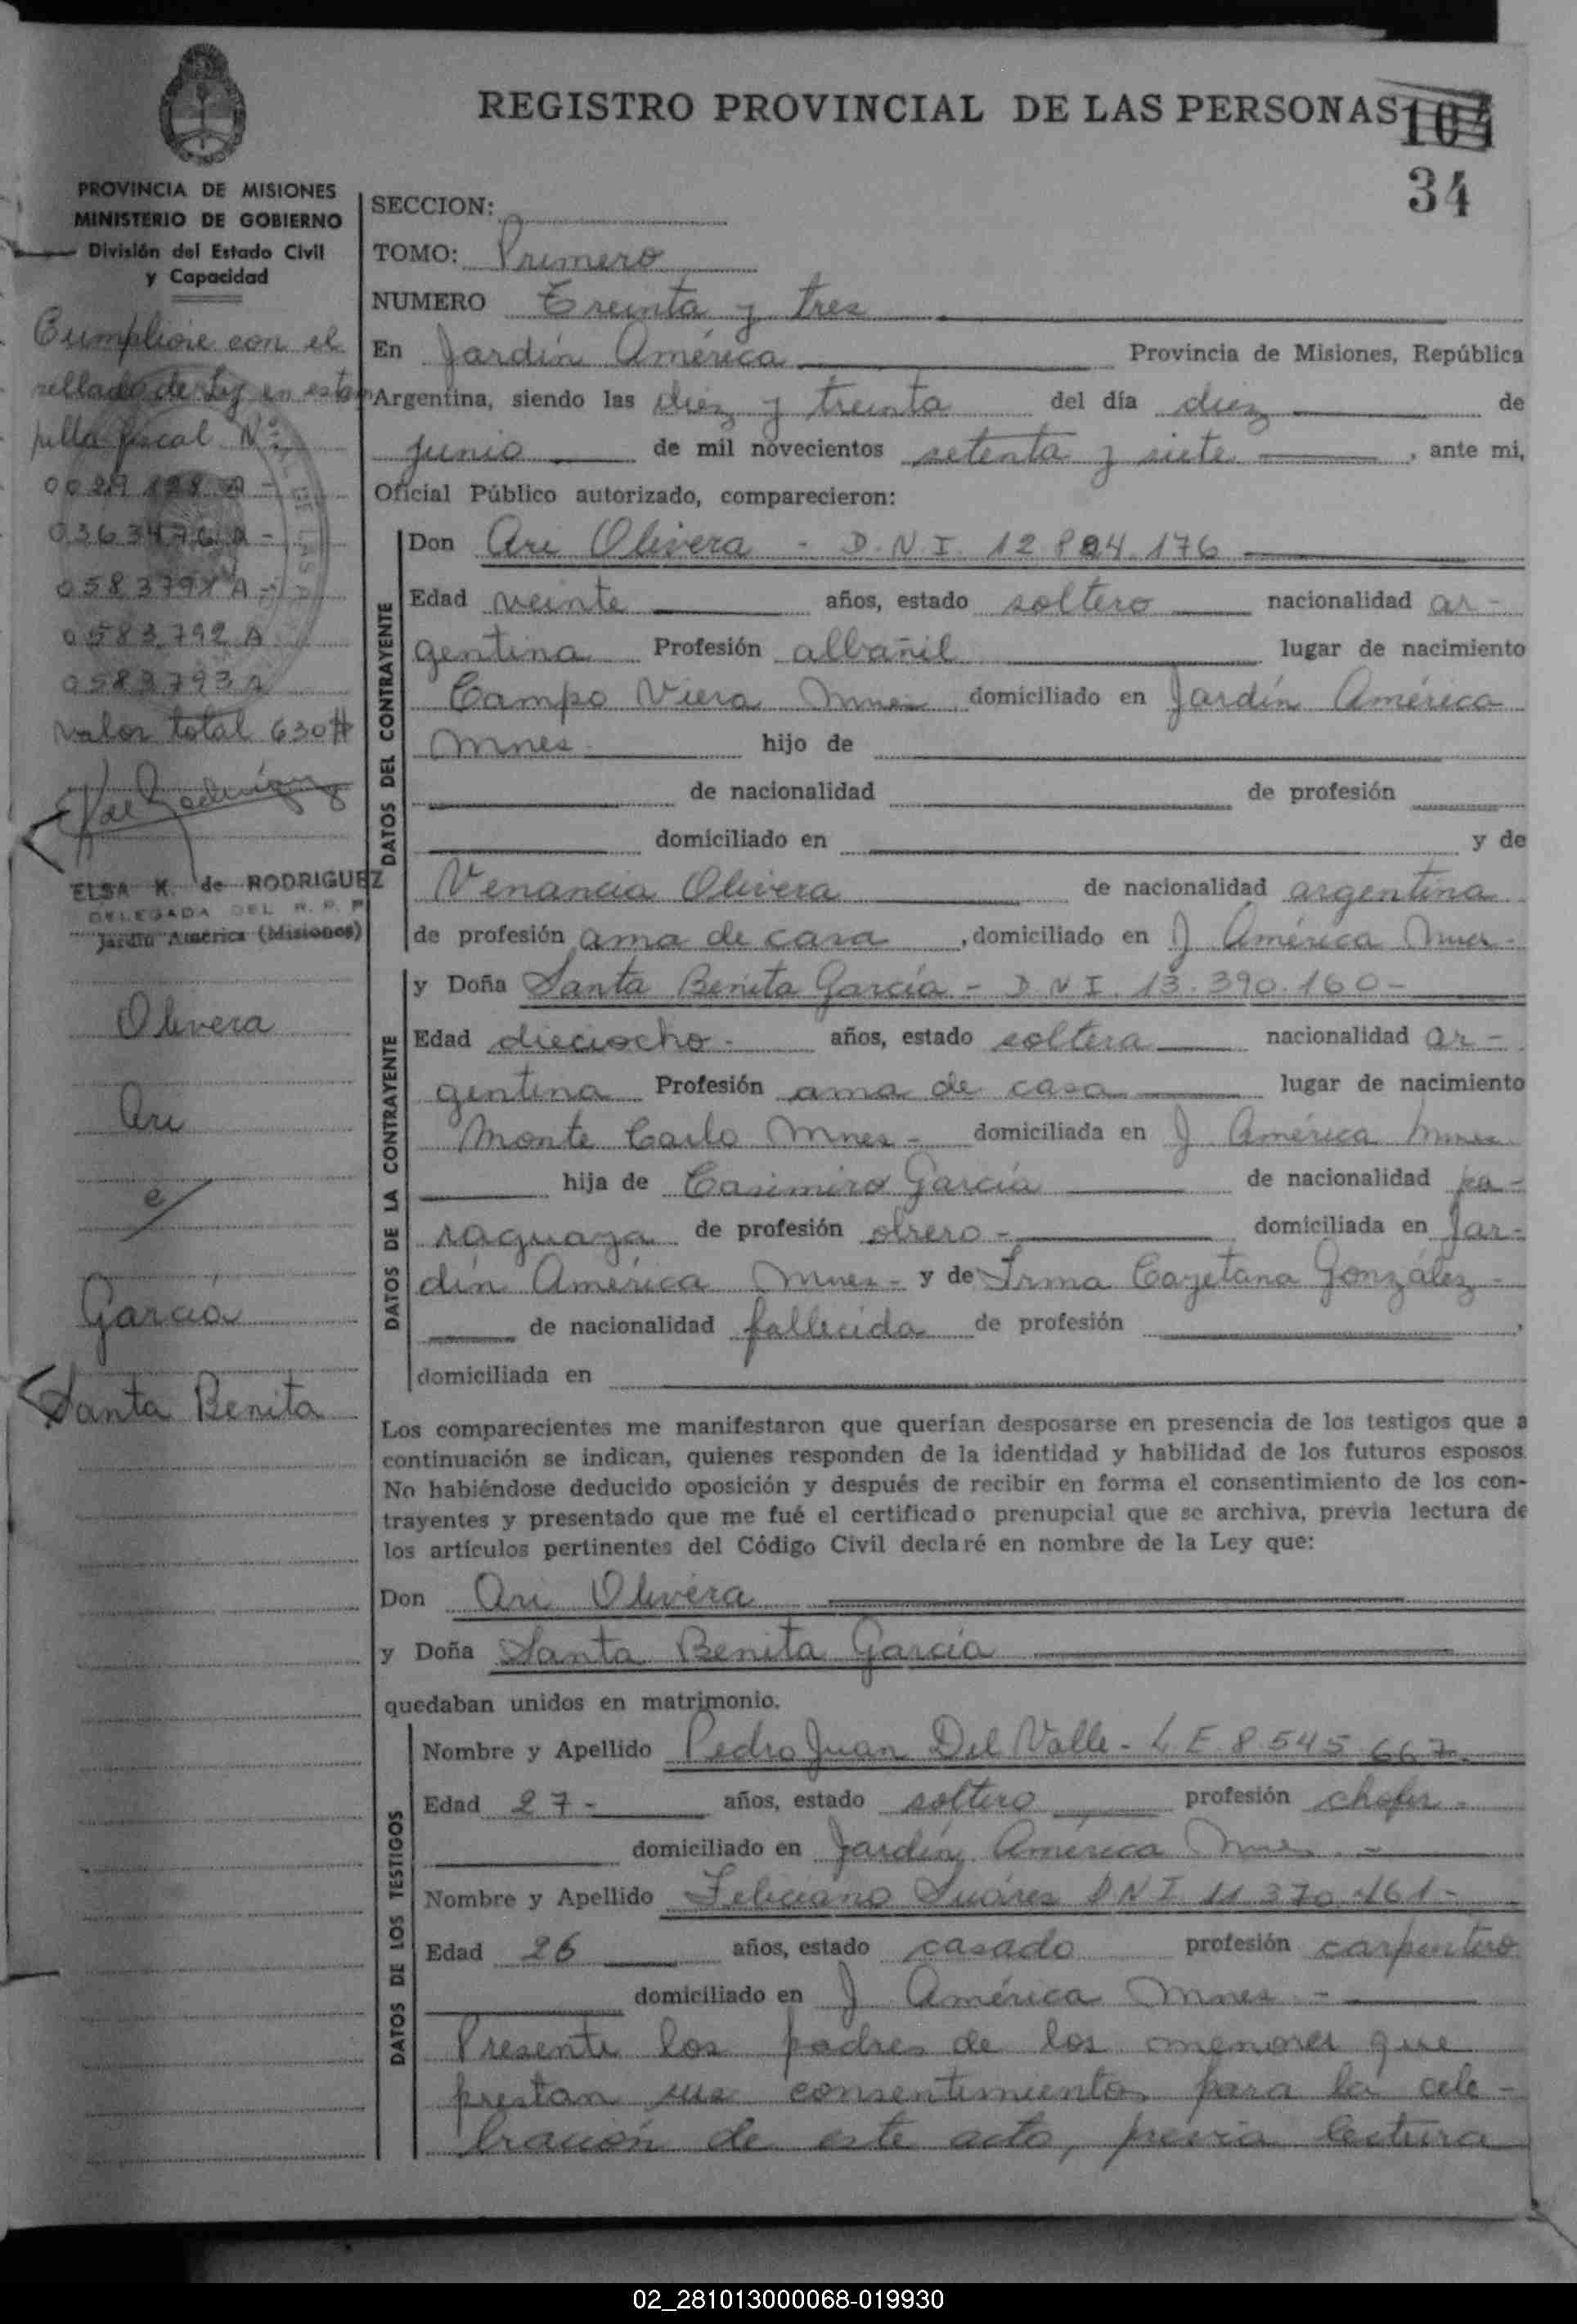 REGISTRO PROVINCIAL DE LAS PERSONAS
34
PROVINCIA DE MISIONES
MINISTERIO DE GOBIERNO
División del Estado Civil
y Capacidad
Cumplióse con el
sellado de Ley en estam
pilla fiscal Nº:
0363476 A -
0583791 A -
0583792 A
0583793 A
valor total 630 $
ELSA K. de RODRIGUEZ
DELEGADA DEL R. P. P
Jardín América (Misiones)
Olivera
Ari
c/
García
Santa Benita
SECCION:
TOMO: Primero
NUMERO Treinta y tres
En Jardín América Provincia de Misiones, República
Argentina, siendo las diez y treinta del día diez de
junio de mil novecientos setenta y siete , ante mi,
Oficial Público autorizado, comparecieron:
DATOS DEL CONTRAYENTE
Don Ari Olivera - D.N.I. 12.824.176
Edad veinte años, estado soltero nacionalidad ar-
gentina Profesión albañil lugar de nacimiento
Campo Viera Mnes domiciliado en Jardín América
Mnes. hijo de
de nacionalidad de profesión
domiciliado en y de
Venancia Olivera de nacionalidad argentina
de profesión ama de casa , domiciliado en J América Mnes-
DATOS DE LA CONTRAYENTE
y Doña Santa Benita García - D N I. 13.390.160-
Edad dieciocho- años, estado soltera nacionalidad ar-
gentina Profesión ama de casa lugar de nacimiento
Monte Carlo Mnes- domiciliada en J América Mnes
hija de Casimiro García de nacionalidad pa-
raguaya de profesión obrero- domiciliada en Jar-
dín América Mnes- y de Irma Cayetana González-
de nacionalidad fallecida de profesión ,
domiciliada en
Los comparecientes me manifestaron que querían desposarse en presencia de los testigos que a
continuación se indican, quienes responden de la identidad y habilidad de los futuros esposos.
No habiéndose deducido oposición y después de recibir en forma el consentimiento de los con-
trayentes y presentado que me fué el certificado prenupcial que se archiva, previa lectura de
los artículos pertinentes del Código Civil declaré en nombre de la Ley que:
Don Ari Olivera
y Doña Santa Benita García
quedaban unidos en matrimonio.
DATOS DE LOS TESTIGOS
Nombre y Apellido Pedro Juan Del Valle - L.E. 8.545.667.
Edad 27- años, estado soltero profesión chofer-
domiciliado en Jardín América Mnes. -
Nombre y Apellido Feliciano Suárez D N I 11 370 161-
Edad 26 años, estado casado profesión carpintero
domiciliado en J América Mnes -
Presente los padres de los menores que
prestan sus consentimientos para la cele-
bración de este acto, previa lectura
02_281013000068-019930